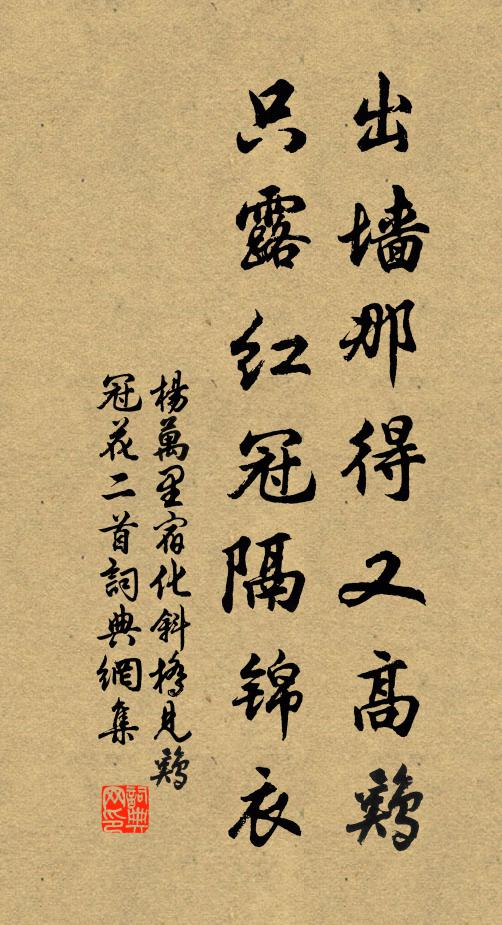 出墙那得又高鷄
只露红冠隔锦衣
楊萬里宿化斜橋見鷄
冠花二首詞典網集
詞典
网印